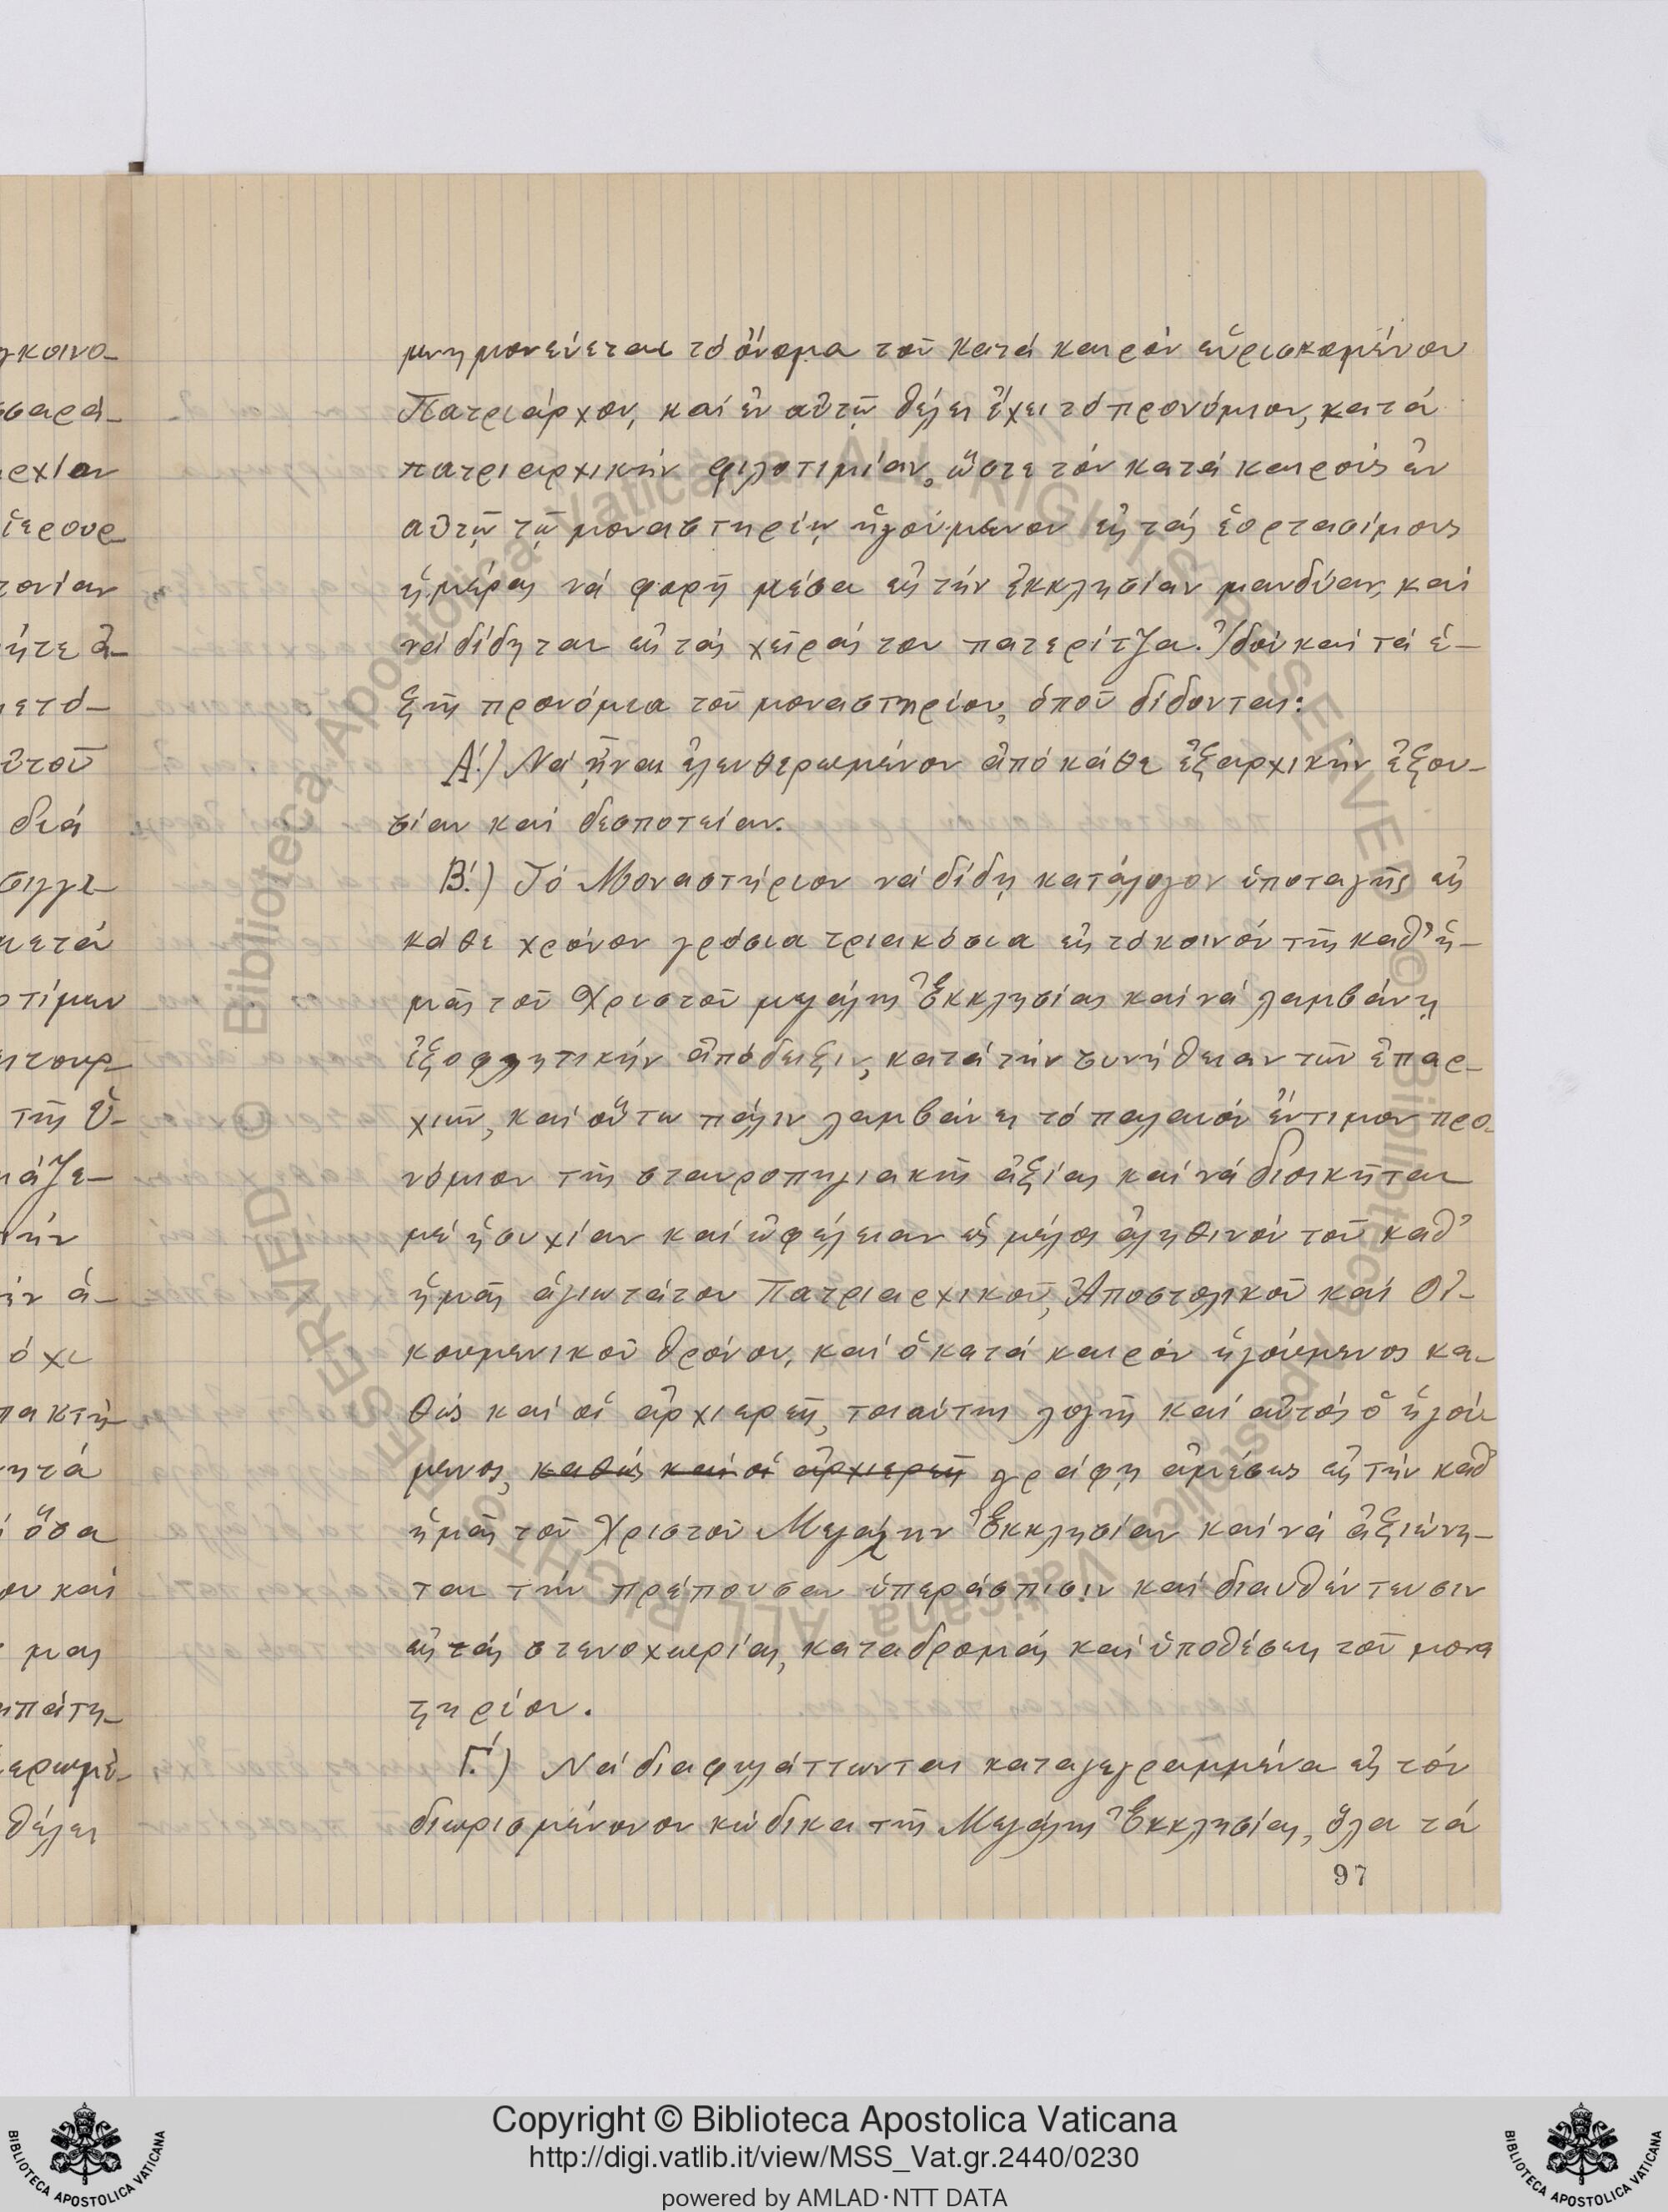 μνημονεύεται τὸ ὄνομα τοῦ κατά καιρόν εὑρισκομένου
Πατριάρχου, καί ἐν αὐτῷ θέλει ἔχει τό προνόμιον, κατά
πατριαρχικήν φιλοτιμίαν, ὥστε τόν κατά καιρούς ἐν
αὐτῷ τῷ μοναστηρίῳ ἡγούμενον εἰς τάς ἑορτασίμους
ἡμέρας νά φορῇ μέσα εἰς τήν ἐκκλησίαν μανδύαν, καί
νά δίδηται εἰς τάς χεῖράς του πατερίτζα. Ἰδού καί τά ἑ-
ξῆς προνόμια τοῦ μοναστηρίου, ὁποῦ δίδονται:
Α΄.) Νά ᾖναι ἐλευθερωμένον ἀπό κάθε ἐξαρχικήν ἐξου-
σίαν καί δεσποτείαν.
Β΄.) Τό Μοναστήριον νά δίδῃ κατάλογον ὑποταγῆς εἰς
κάθε χρόνον γρόσια τριακόσια εἰς τό κοινόν τῆς καθ' ἡ-
μᾶς τοῦ Χριστοῦ μεγάλης Ἐκκλησίας καί νά λαμβάνῃ
ἐξοφλητικήν ἀπόδειξιν, κατά τήν συνήθειαν τῶν ἐπαρ-
χιῶν, καί οὕτω πάλιν λαμβάνει τό παλαιόν ἔντιμον προ-
νόμιον τῆς σταυροπηγιακῆς ἀξίας καί νά διοικῆται
μέ ἡσυχίαν καί ὠφέλειαν ὡς μέλος ἀληθινόν τοῦ καθ'
ἡμᾶς ἁγιωτάτου Πατριαρχικοῦ, Ἀποστολικοῦ καί Οἰ-
κουμενικοῦ θρόνου, καί ὁ κατά καιρόν ἡγούμενος κα-
θώς καί οἱ ἀρχιερεῖς, τοιαύτης λογῆς καί αὐτός ὁ ἡγού
μενος, καθώς καί οἱ ἀρχιερεῖς γράφῃ ἀμέσως εἰς τήν καθ'
ἡμᾶς τοῦ Χριστοῦ Μεγάλην Ἐκκλησίαν καί νά ἀξιώνη-
ται τήν πρέπουσαν ὑπεράσπισιν καί διαυθέντευσιν
εἰς τάς στενοχωρίας, καταδρομάς καί ὑποθέσεις τοῦ μονα
στηρίου.
Γ΄.) Νά διαφυλάττωνται καταγεγραμμένα εἰς τόν
διωρισμένονον κώδικα τῆς Μεγάλης Ἐκκλησίας, ὅλα τά
97
Copyright © Biblioteca Apostolica Vaticana
http://digi.vatlib.it/view/MSS_Vat.gr.2440/0230
powered by AMLAD·NTT DATA
BIBLIOTECA APOSTOLICA VATICANA
BIBLIOTECA APOSTOLICA VATICANA